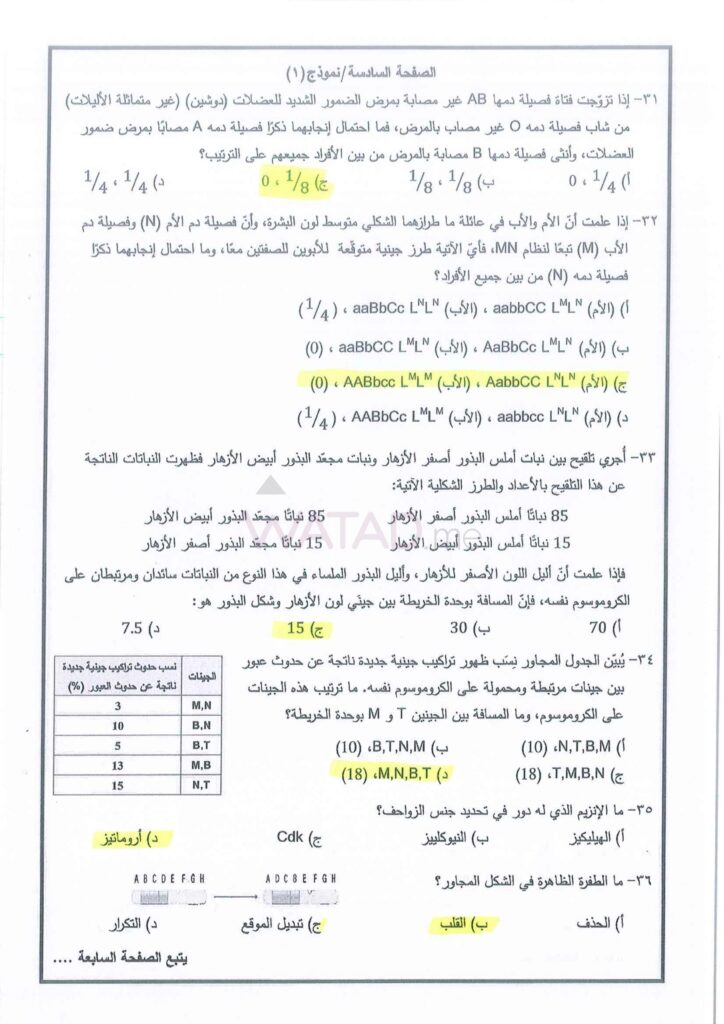 الصفحة السادسة/نموذج(١)
٣١- إذا تزوّجت فتاة فصيلة دمها AB غير مصابة بمرض الضمور الشديد للعضلات (دوشين) (غير متماثلة الأليلات)
من شاب فصيلة دمه O غير مصاب بالمرض، فما احتمال إنجابهما ذكرًا فصيلة دمه A مصابًا بمرض ضمور
العضلات، وأنثى فصيلة دمها B مصابة بالمرض من بين الأفراد جميعهم على الترتيب؟
أ) 1/4 ، 0 ب) 1/8 ، 1/8 ج) 1/8 ، 0 د) 1/4 ، 1/4
٣٢- إذا علمت أنّ الأم والأب في عائلة ما طرازهما الشكلي متوسط لون البشرة، وأنّ فصيلة دم الأم (N) وفصيلة دم
الأب (M) تبعًا لنظام MN، فأيّ الآتية طرز جينية متوقّعة للأبوين للصفتين معًا، وما احتمال إنجابهما ذكرًا
فصيلة دمه (N) من بين جميع الأفراد؟
أ) (الأم) aabbCC LᴹLᴺ ، (الأب) aaBbCc LᴺLᴺ ، (1/4)
ب) (الأم) AaBbCc LᴹLᴺ ، (الأب) aaBbCC LᴹLᴺ ، (0)
ج) (الأم) AabbCC LᴺLᴺ ، (الأب) AABbcc LᴹLᴹ ، (0)
د) (الأم) aabbcc LᴺLᴺ ، (الأب) AABbCc LᴹLᴹ ، (1/4)
٣٣- أُجري تلقيح بين نبات أملس البذور أصفر الأزهار ونبات مجعّد البذور أبيض الأزهار فظهرت النباتات الناتجة
عن هذا التلقيح بالأعداد والطرز الشكلية الآتية:
85 نباتًا أملس البذور أصفر الأزهار 85 نباتًا مجعّد البذور أبيض الأزهار
15 نباتًا أملس البذور أبيض الأزهار 15 نباتًا مجعّد البذور أصفر الأزهار
WATAD.me
فإذا علمت أنّ أليل اللون الأصفر للأزهار، وأليل البذور الملساء في هذا النوع من النباتات سائدان ومرتبطان على
الكروموسوم نفسه، فإنّ المسافة بوحدة الخريطة بين جينَي لون الأزهار وشكل البذور هو:
أ) 70 ب) 30 ج) 15 د) 7.5
٣٤- يُبيّن الجدول المجاور نِسَب ظهور تراكيب جينية جديدة ناتجة عن حدوث عبور
بين جينات مرتبطة ومحمولة على الكروموسوم نفسه. ما ترتيب هذه الجينات
على الكروموسوم، وما المسافة بين الجينين T و M بوحدة الخريطة؟
أ) N,T,B,M، (10) ب) B,T,N,M، (10)
ج) T,M,B,N، (18) د) M,N,B,T، (18)
الجينات نسب حدوث تراكيب جينية جديدة
ناتجة عن حدوث العبور (%)
M,N 3
B,N 10
B,T 5
M,B 13
N,T 15
٣٥- ما الإنزيم الذي له دور في تحديد جنس الزواحف؟
أ) الهيليكيز ب) النيوكلييز ج) Cdk د) أروماتيز
٣٦- ما الطفرة الظاهرة في الشكل المجاور؟
A B C D E F G H A D C B E F G H
أ) الحذف ب) القلب ج) تبديل الموقع د) التكرار
يتبع الصفحة السابعة ....